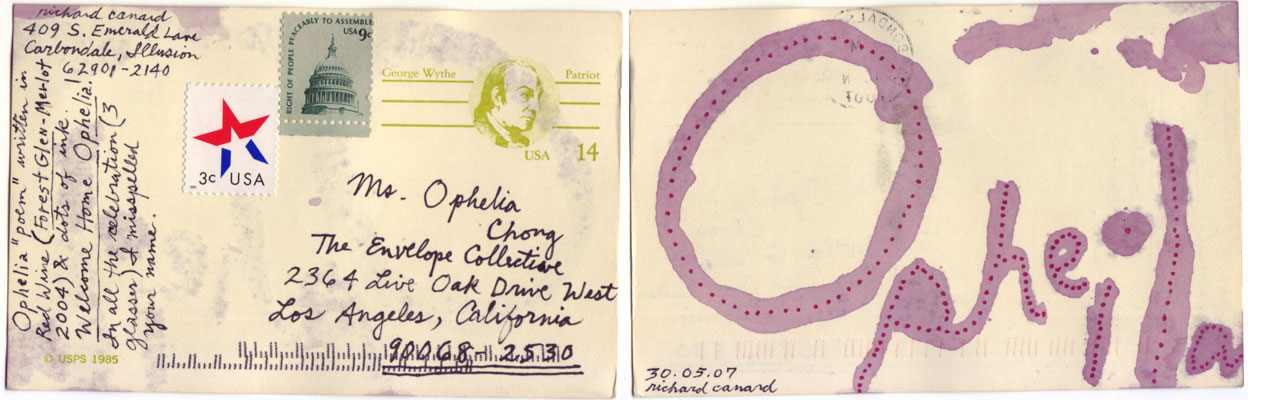 richard canard
409 S. Emerald Lane
Carbondale, Illusion
62901-2140
Ophelia "poem" written in
Red Wine (Forest Glen - Merlot
2004) & dots of ink.
Welcome Home Ophelia.
In all the celebration (3
glasses) I misspelled
your name.
RIGHT OF PEOPLE PEACEABLY TO ASSEMBLE
USA 9c
3c USA
George Wythe
Patriot
USA 14
Ms. Ophelia
Chong
The Envelope Collective
2364 Live Oak Drive West
Los Angeles, California
90068-2530
© USPS 1985
Opheila
30.05.07
richard canard